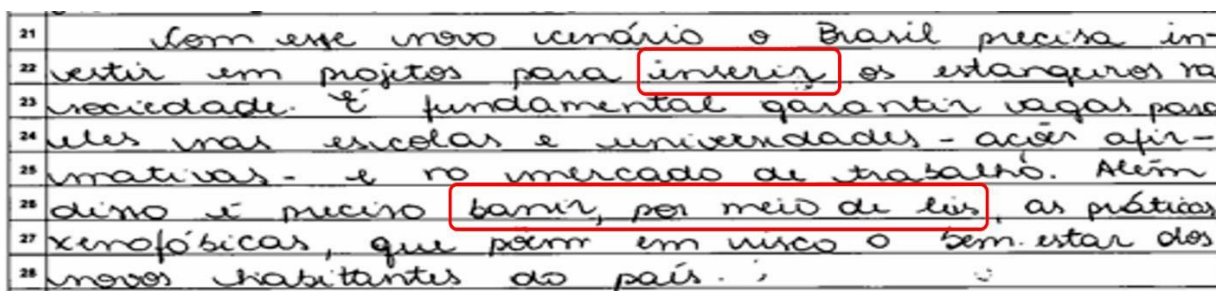 21 Com esse novo cenário o Brasil precisa in-
22 vestir em projetos para inserir os estangeiros na
23 sociedade. É fundamental garantir vagas para
24 eles nas escolas e universidades - ações afir-
25 mativas - e no mercado de trabalho. Além
26 disso é preciso banir, por meio de leis, as práticas
27 xenofóbicas, que põem em risco o bem-estar dos
28 novos habitantes do país.